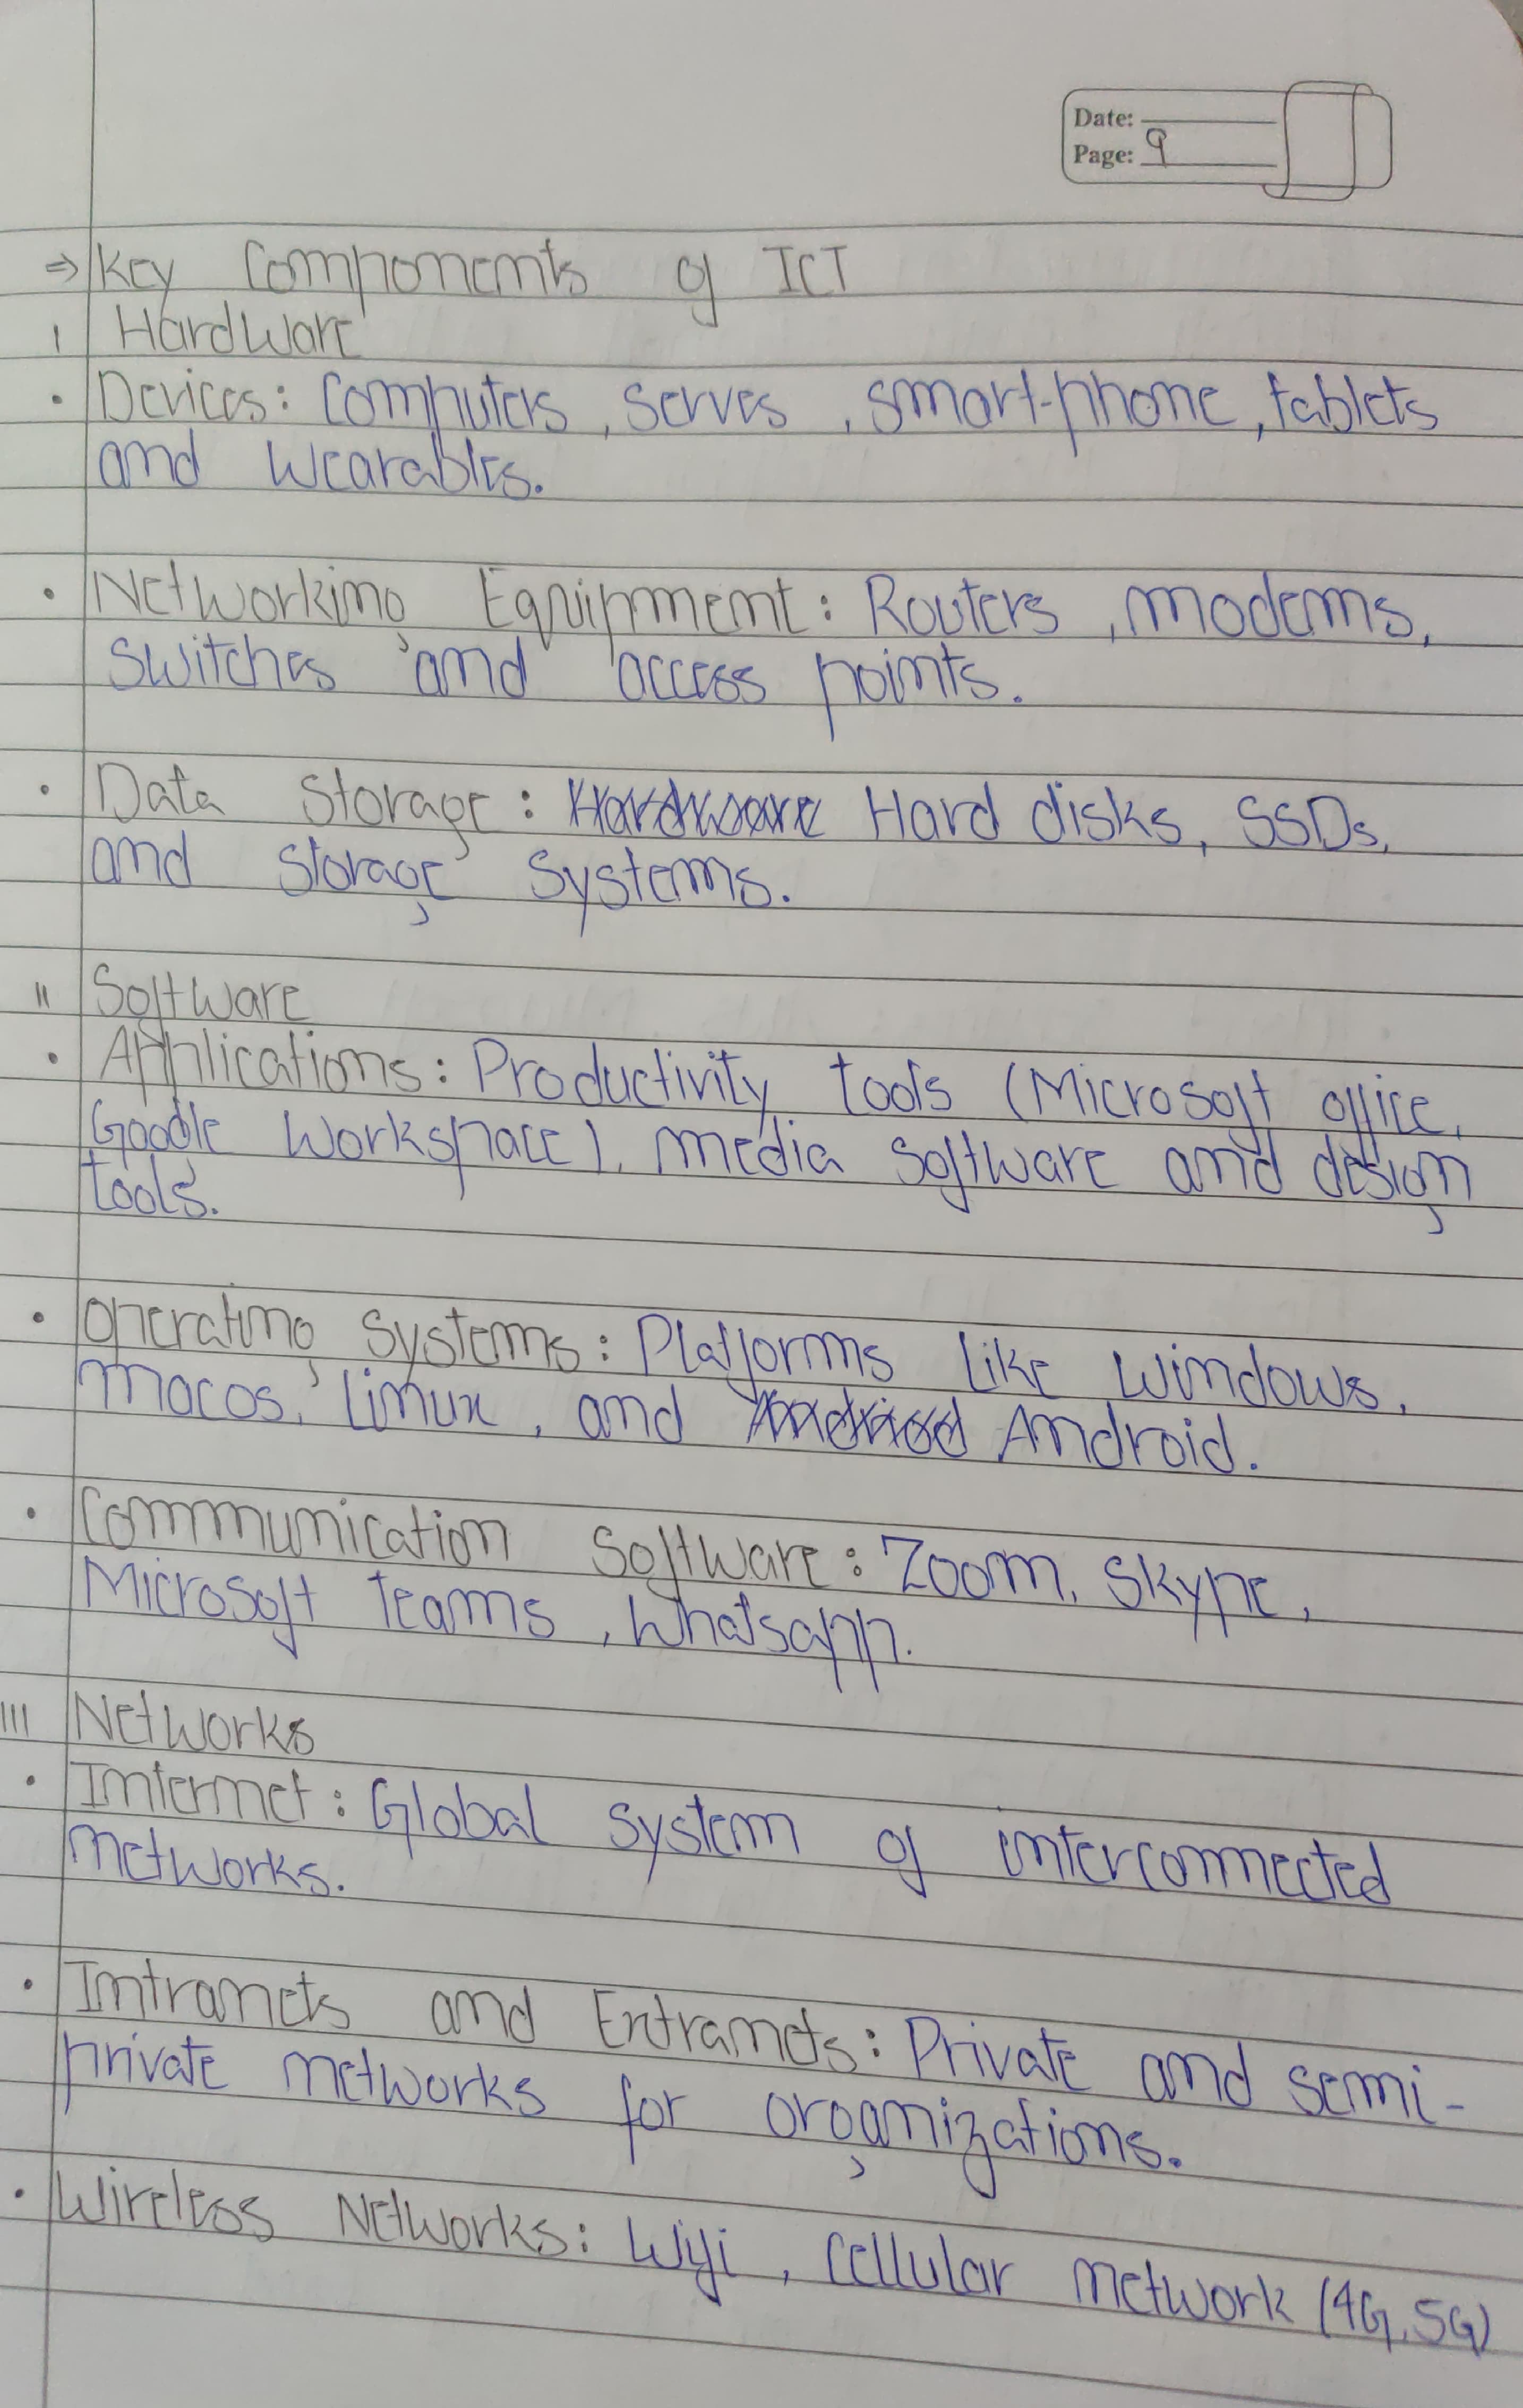 Date:
Page: 9
⇒ Key Components of ICT
I Hardware
• Devices: Computers, serves, smart-phone, tablets
and wearables.
• Networking Equipment: Routers, modems,
switches and access points.
• Data Storage: Hardware Hard disks, SSDs,
and storage systems.
II Software
• Applications: Productivity tools (Microsoft office,
Goodle Workspace), media software and design
tools.
• Operating Systems: Platforms like windows,
macos, Linux, and Andriod Android.
• Communication Software: Zoom, Skype,
Microsoft teams, Whatsapp.
III Networks
• Internet: Global system of interconnected
networks.
• Intranets and Extranets: Private and semi-
private networks for organizations.
• Wireless Networks: Wifi, cellular network (4G, 5G)